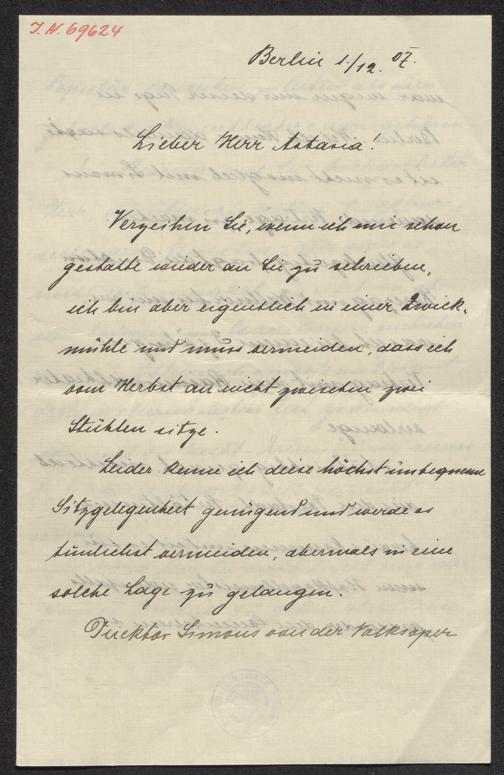 I.N. 69624
Berlin 1./12. 07.
Lieber Herr Astaria!
Verzeihen Sie, wenn ich mir schon
gestatte wieder an Sie zu schreiben,
ich bin aber eigentlich in einer Zwick-
mühle und muss vermeiden, dass ich
vom Herbst an nicht zwischen zwei
Stühlen sitze.
Leider kenne ich diese höchst unbequeme
Sitzgelegenheit genügend und werde es
tunlichst vermeiden, abermals in eine
solche Lage zu gelangen.
Direktor Simons von der Volksoper